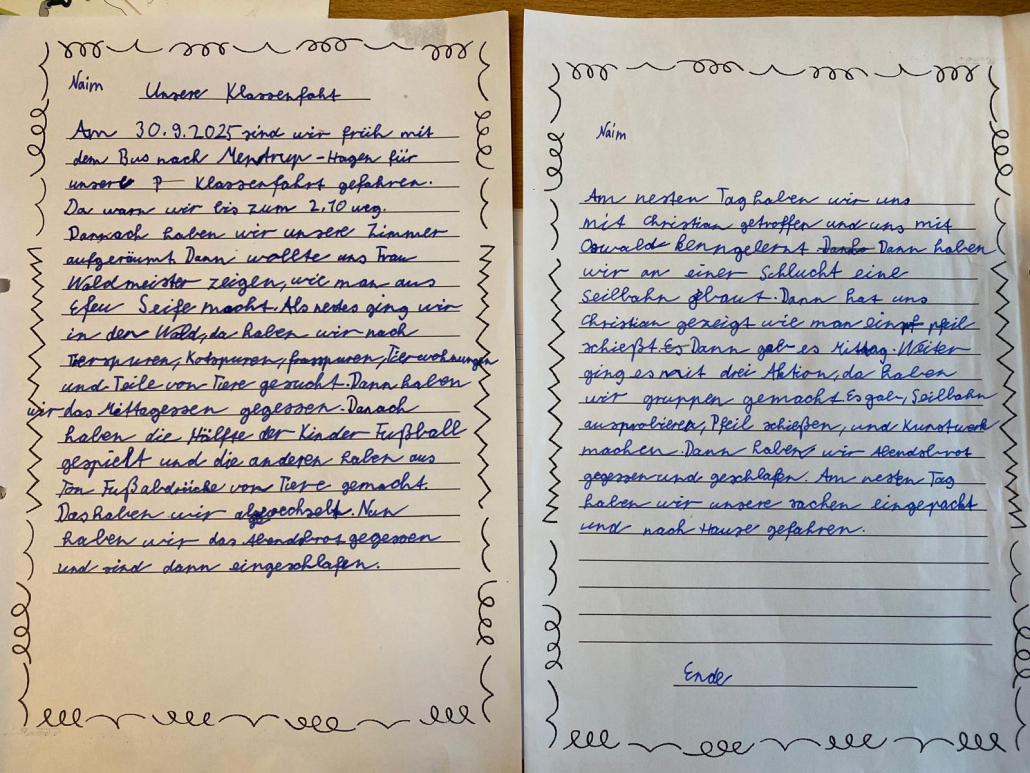 Naim
Unsere Klassenfaht
Am 30.9.2025 sind wir früh mit
dem Bus nach Mentrup-Hagen für
unsere Klassenfahrt gefahren.
Da warn wir bis zum 2.10 weg.
Danach haben wir unsere Zimmer
aufgeräumt Dann wollte uns Frau
Waldmeister zeigen, wie man aus
Efeu Seife macht. Als nestes ging wir
in den Wald, da haben wir nach
Tierspuren, Kotspuren, frasspuren, Tierwohnungen
und Teile von Tiere gesucht. Dann haben
wir das Mittagessen gegessen. Danach
haben die Hälfte der Kinder Fußball
gespielt und die anderen haben aus
Ton Fußabdrücke von Tiere gemacht.
Das haben wir abgewechselt. Nun
haben wir das Abendsbrot gegessen
und sind dann eingeschlafen.
Naim
Am nesten Tag haben wir uns
mit Christian getroffen und uns mit
Oswald kenngelernt Dann haben
wir an einer Schlucht eine
Seilbahn gebaut. Dann hat uns
Christian gezeigt wie man ein pfeil
schießt. Dann gab es Mittag. Weiter
ging es mit drei Aktion, da haben
wir gruppen gemacht. Es gab, Seilbahn
ausprobieren, Pfeil schießen, und Kunstwerk
machen. Dann haben wir Abendsbrot
gegessen und geschlafen. Am nesten Tag
haben wir unsere sachen eingepackt
und nach Hause gefahren.
Ende